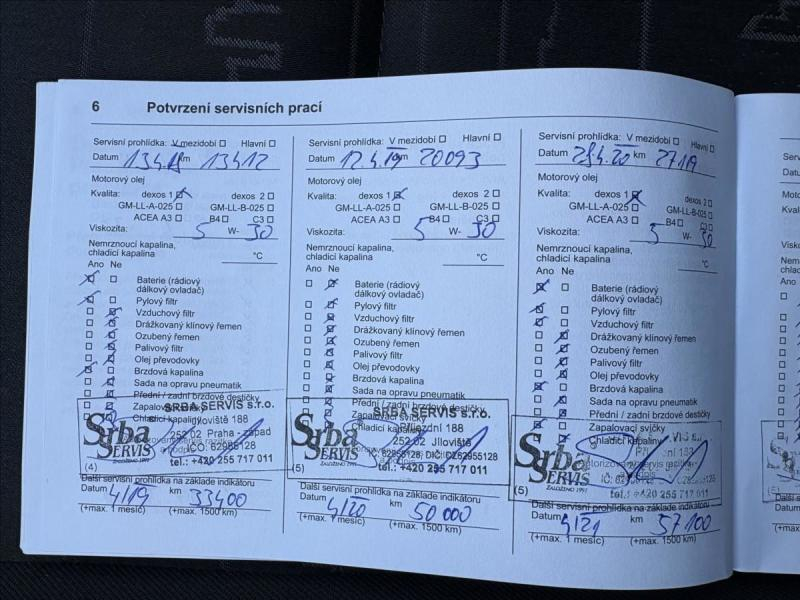 6 Potvrzení servisních prací
Servisní prohlídka: V mezidobí Hlavní
Datum 13.4.18 km 13412
Motorový olej
Kvalita: dexos 1 dexos 2
GM-LL-A-025 GM-LL-B-025
ACEA A3 B4 C3
Viskozita: 5 W- 30
Nemrznoucí kapalina,
chladicí kapalina °C
Ano Ne
Baterie (rádiový
dálkový ovladač)
Pylový filtr
Vzduchový filtr
Drážkovaný klínový řemen
Ozubený řemen
Palivový filtr
Olej převodovky
Brzdová kapalina
Sada na opravu pneumatik
Přední / zadní brzdové destičky
Zapalovací
Chladicí kapalina
SRBA SERVIS s.r.o.
Srba
SERVIS
ZALOŽENO 1991
Jíloviště 188
252 02 Praha - západ
IČO: 62955128
tel.: +420 255 717 011
(4)
Další servisní prohlídka na základě indikátorů
Datum 4/19 km 33400
(+max. 1 měsíc) (+max. 1500 km)
Servisní prohlídka: V mezidobí Hlavní
Datum 12.4.19 km 20093
Motorový olej
Kvalita: dexos 1 dexos 2
GM-LL-A-025 GM-LL-B-025
ACEA A3 B4 C3
Viskozita: 5 W- 30
Nemrznoucí kapalina,
chladicí kapalina °C
Ano Ne
Baterie (rádiový
dálkový ovladač)
Pylový filtr
Vzduchový filtr
Drážkovaný klínový řemen
Ozubený řemen
Palivový filtr
Olej převodovky
Brzdová kapalina
Sada na opravu pneumatik
Přední / zadní brzdové destičky
Zapalovací svíčky
Chladicí kapaliny
SRBA SERVIS s.r.o.
Srba
SERVIS
ZALOŽENO 1991
Příjezdní 188
252 02 Jíloviště
62955128, DIČ: CZ62955128
tel.: +420 255 717 011
(5)
Další servisní prohlídka na základě indikátorů
Datum 4/20 km 50 000
(+max. 1 měsíc) (+max. 1500 km)
Servisní prohlídka: V mezidobí Hlavní
Datum 28.4.20 km 27119
Motorový olej
Kvalita: dexos 1 dexos 2
GM-LL-A-025 GM-LL-B-025
ACEA A3 B4 C3
Viskozita: 5 W- 30
Nemrznoucí kapalina,
chladicí kapalina °C
Ano Ne
Baterie (rádiový
dálkový ovladač)
Pylový filtr
Vzduchový filtr
Drážkovaný klínový řemen
Ozubený řemen
Palivový filtr
Olej převodovky
Brzdová kapalina
Sada na opravu pneumatik
Přední / zadní brzdové destičky
Zapalovací svíčky
Chladicí kapaliny
Srba
SERVIS
ZALOŽENO 1991
tel.: +420 255 717 011
(5)
Další servisní prohlídka na základě indikátorů
Datum 4/21 km 57100
(+max. 1 měsíc) (+max. 1500 km)